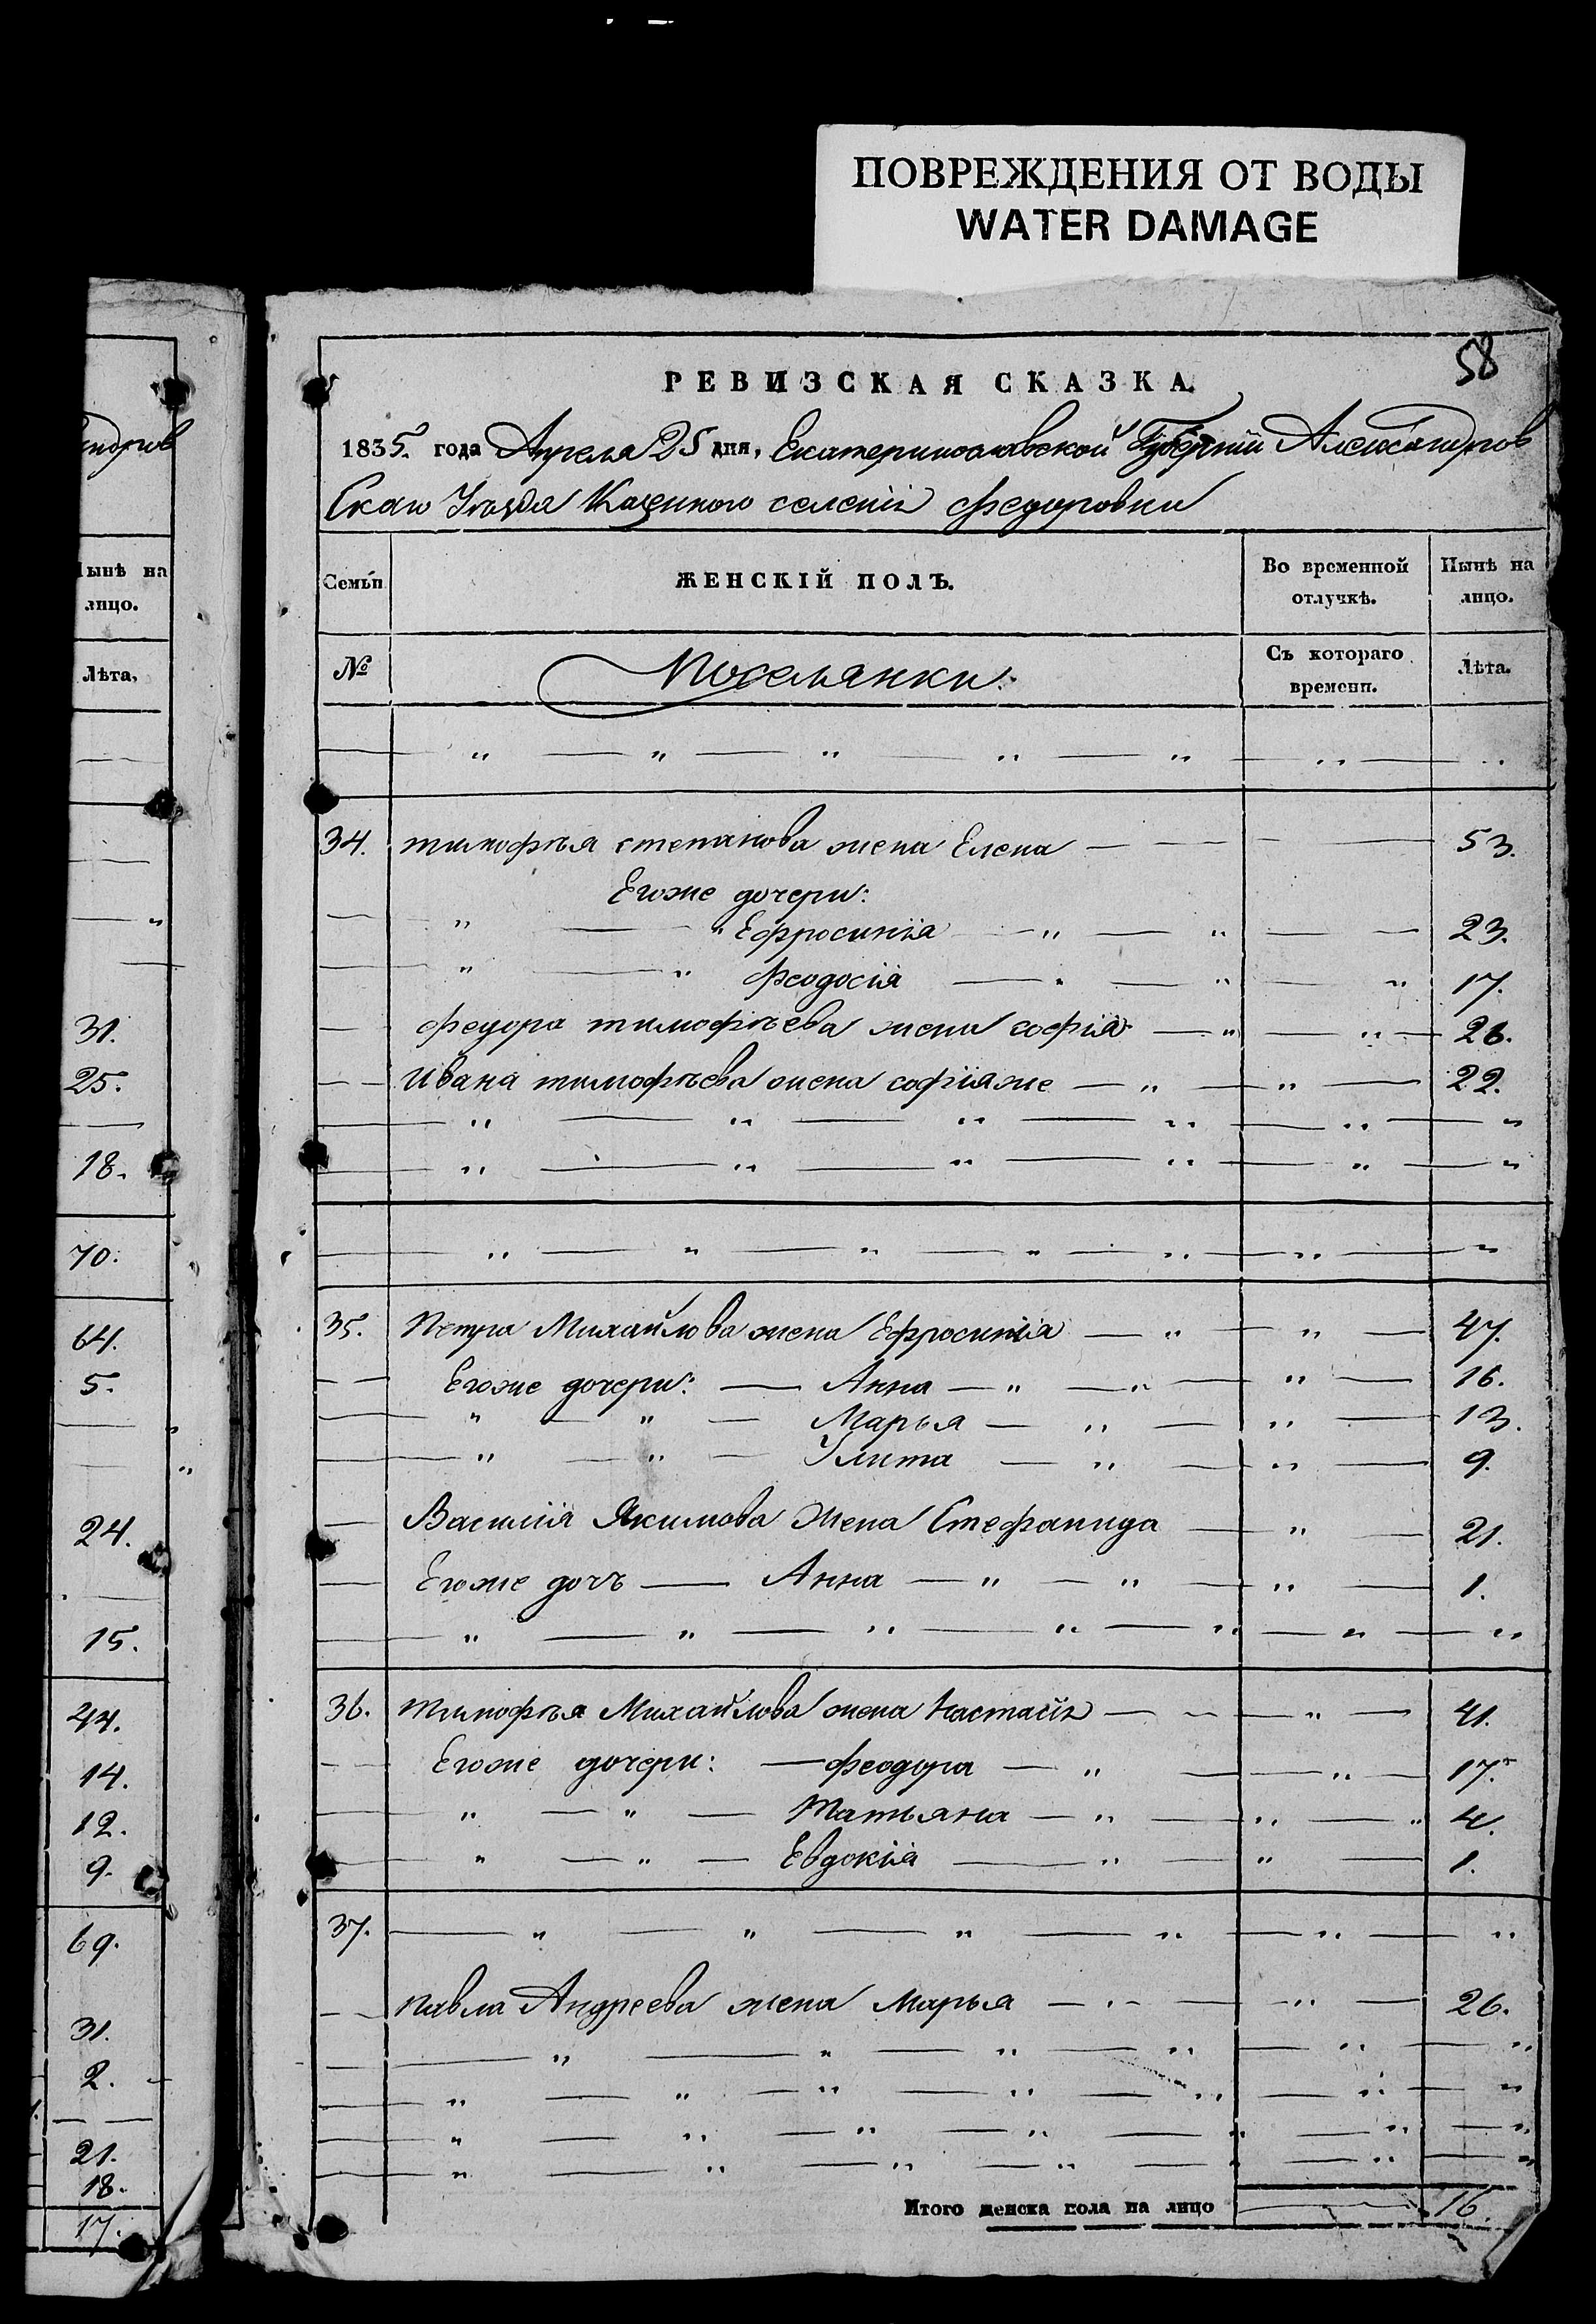 ПОВРЕЖДЕНИЯ ОТ ВОДЫ
WATER DAMAGE
58
РЕВИЗСКАЯ СКАЗКА.
1835. года Апреля 25 дня, Екатеринославской Губернии Александров
Скаго Уезда Казенного селенія Федоровки
Семьи ЖЕНСКІЙ ПОЛЪ. Во временной отлучкѣ. Нынѣ на лицо.
№ Поселянки: Съ котораго времени. Лѣта.
34. тимофѣя степанова жена Елена 53.
Егоже дочери:
Ефросинія 23.
Феодосія 17.
Федора тимофѣева жена софія 26.
Ивана тимофѣева жена софіяже 22.
35. Петра Михайлова жена Ефросинія 47.
Егоже дочери: Анна 16.
Марья 13.
Улита 9.
Василія Якимова Жена Стефанида 21.
Егоже дочъ Анна 1.
36. Тимофѣя Михайлова жена Настасія 41.
Егоже дочери: Феодора 17.
Татьяна 4.
Евдокія 1.
37.
Павла Андреева жена Марья 26.
Итого женска пола на лицо 16.
ндров
Нынѣ на
лицо.
Лѣта,
31.
25.
18.
70.
64.
5.
24.
15.
44.
14.
12.
9.
69.
31.
2.
21.
18.
17.